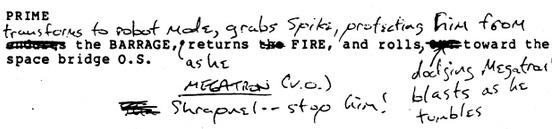 PRIME
transforms to robot mode, grabs Spike, protecting him from
the BARRAGE, returns the FIRE, and rolls, toward the
space bridge O.S.
as he
dodging Megatron's
blasts as he
tumbles
MEGATRON (V.O.)
Shrapnel -- stop him!